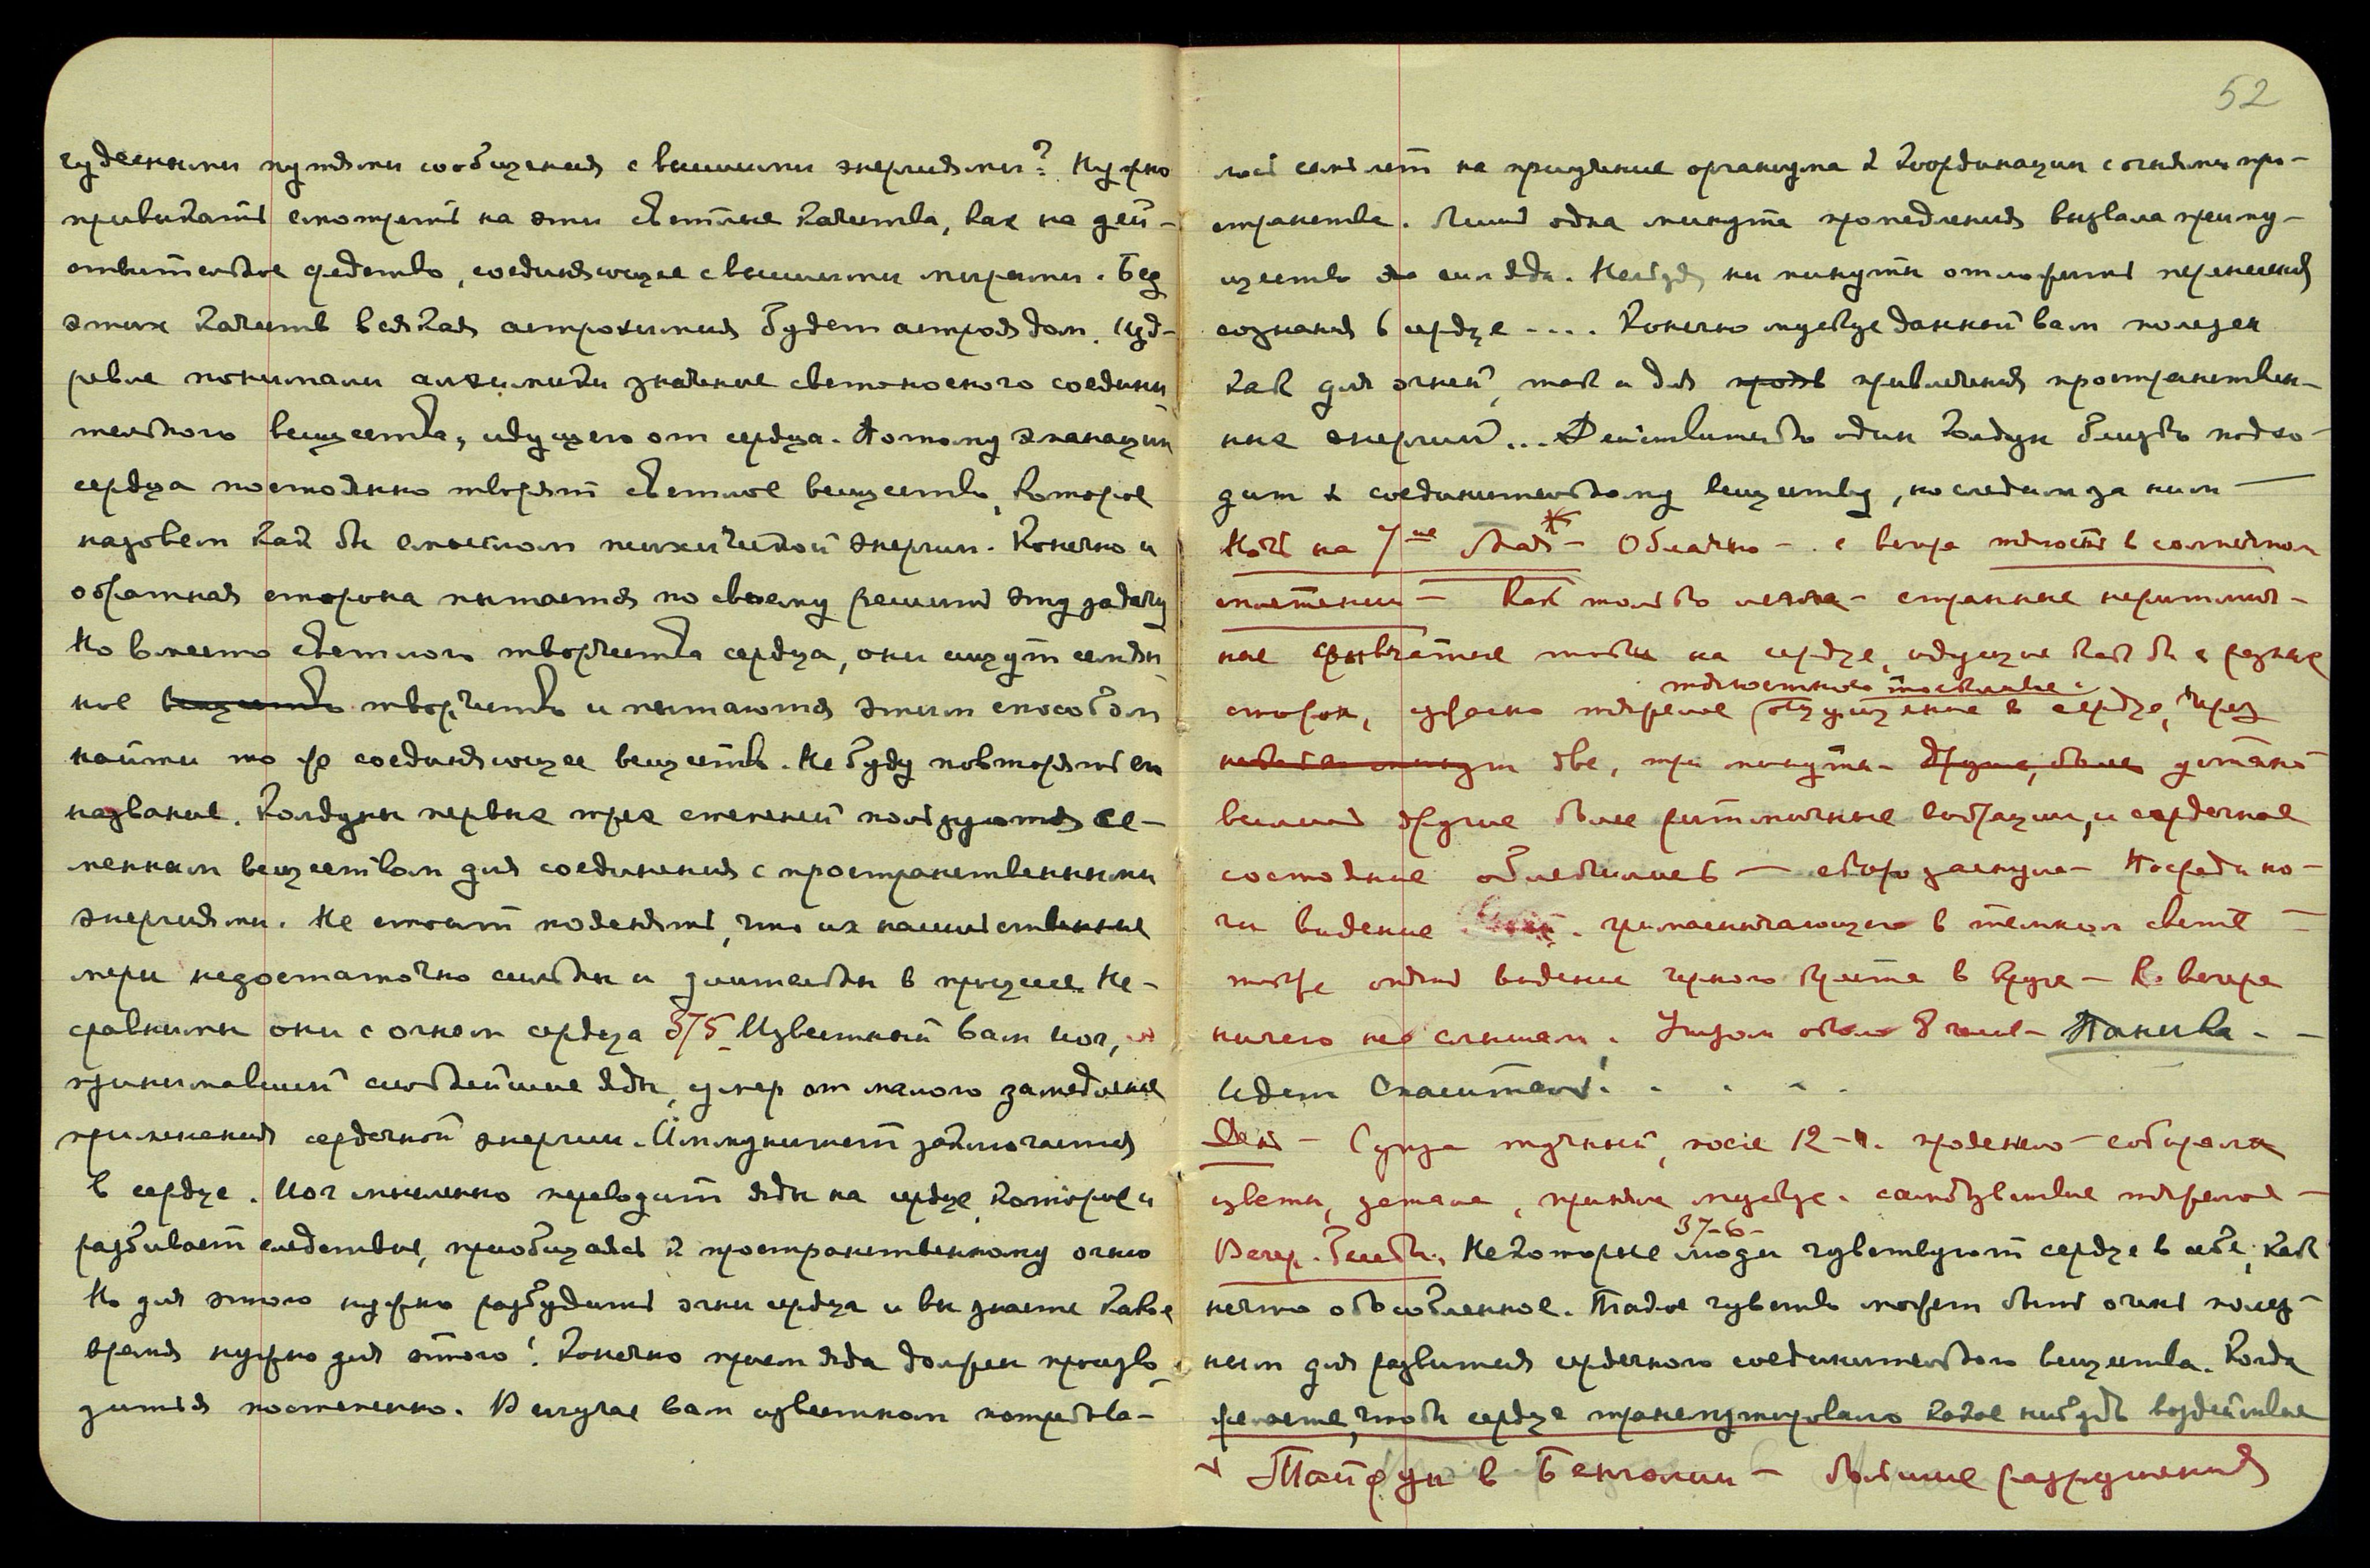 чудесными путями сообщения с высшими энергиями? Нужно
привыкать смотреть на эти светлые качества, как на дей-
ствительное средство, соединяющее с высшими мирами. Без
этих качеств всякая астрохимия будет астроядом. Изд-
ревле понимали алхимики значение светоносного соедини
тельного вещества, идущего от сердца. Потому эманации
сердца постоянно творят светлое вещество, которое
назовем как бы смыслом психической энергии. Конечно и
обратная сторона пытается по своему решить эту задачу
Но вместо светлого творчества сердца, они ищут семян
ное вещество творчество и пытаются этим способом
найти то же соединяющее вещество. Не буду повторять ея
название. Колдуны первых трех степеней пользуются се-
менным веществом для соединения с пространственными
энергиями. Не стоит пояснять, что их насильственные
меры недостаточно сильны и длительны в процессе. Не-
сравнимы они с огнем сердца 375 Известный вам йог,
принимавший сильнейшие яды, умер от малого замедления
применения сердечной энергии. Иммунитет заключается
в сердце. Йог мысленно переводит яды на сердце, которое и
разбивает следствие, приобщаясь к пространственному огню
Но для этого нужно разбудить огни сердца и вы знаете какое
время нужно для этого! Конечно прием яда должен произво
диться постепенно. В случае вам известном потребова-
52
лось семь лет на приучение организма к координации с огнями про-
странства. Лишь одна минута промедления вызвала преиму-
щество сил яда. Нельзя ни минуты отложить перенесения
сознания в сердце .... Конечно мускус данный вам полезен
как для огней, так и для привлечения пространствен-
ных энергий... Действительно один колдун близко подхо-
дит к соединительному веществу, но следим за ним —
Ночь на 7ое Мая * — Облачно — с вечера тягость в солнечном
сплетении — Как только легла — странные неритмич-
ные токи на сердце, идущие как бы с разных
тягостное тоскливое
сторон, ужасно тяжелое ощущение в сердце, через
две, три минуты — другие, более устано
вились другие более ритмичные вибрации, и сердечное
состояние облегчилось — скоро заснула — Посреди но-
чи видение гримасничающего в темном свете —
тоже опять видение черного в круге — С вечера
ничего не слышала. Утром около 8 часов — Паника. —
Идет Спаситель! . . . .
День — Сердце, после 12-ч. прояснело — собирала
цветы, устала, приняла мускус. самочувствие тяжелое —
37-6-
Вечер. Беседа. Некоторые люди чувствуют сердце в себе, как
нечто обособленное. Такое чувство может быть очень полез-
ным для развития сердечного соединительного вещества. Когда
желаете, чтобы сердце трансмутировало какое нибудь воздействие
Тайфун в Бенгалии — большие разрушения